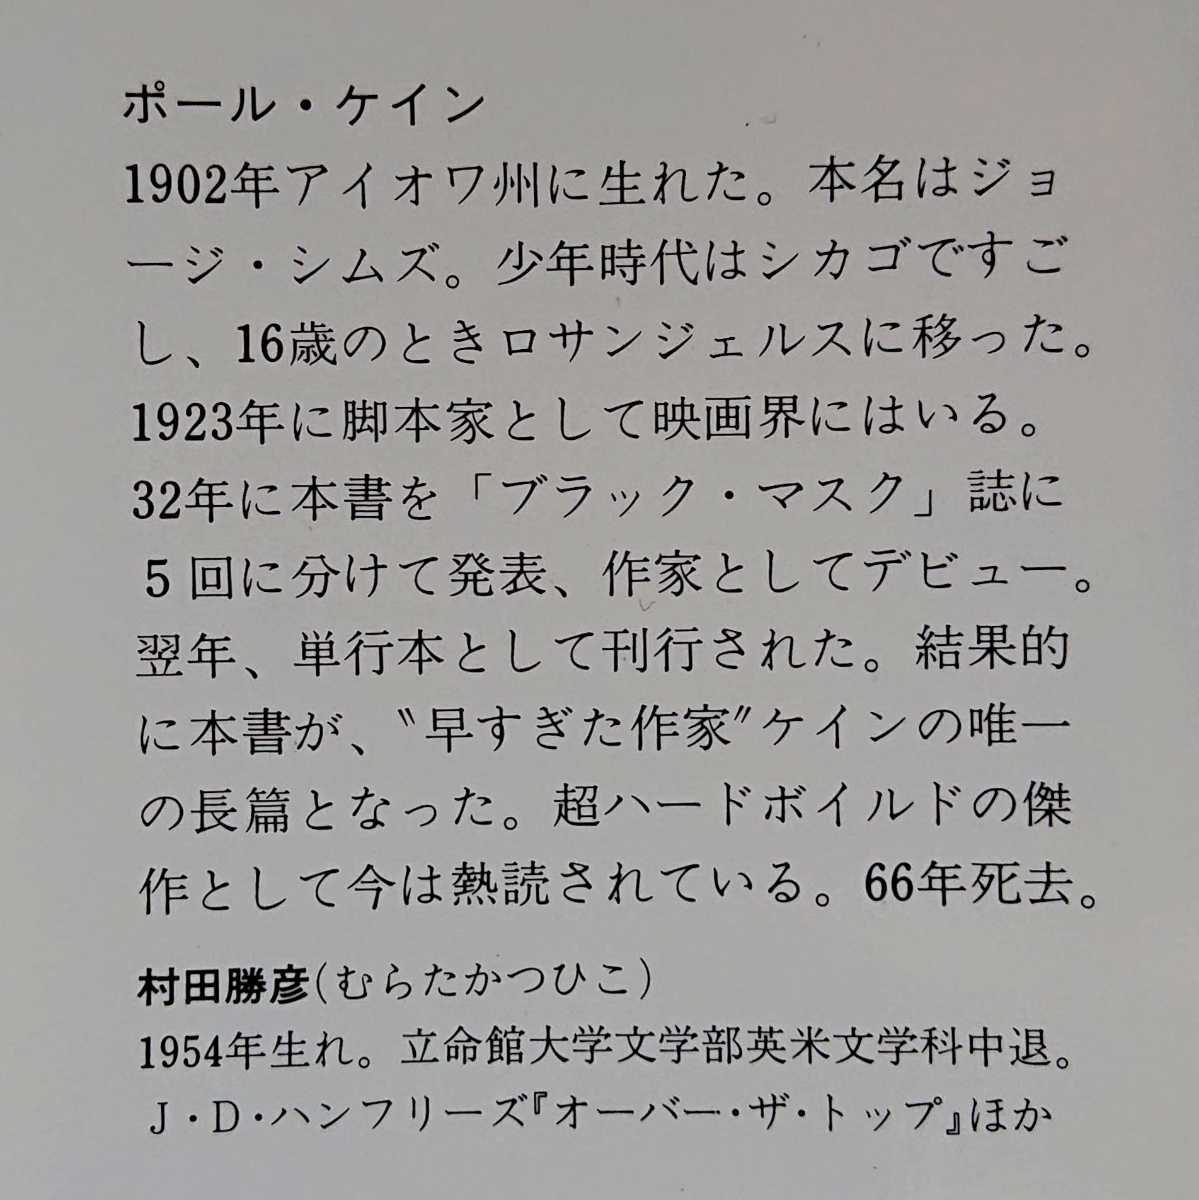 ポール・ケイン
1902年アイオワ州に生れた。本名はジョ
ージ・シムズ。少年時代はシカゴですご
し、16歳のときロサンジェルスに移った。
1923年に脚本家として映画界にはいる。
32年に本書を「ブラック・マスク」誌に
5回に分けて発表、作家としてデビュー。
翌年、単行本として刊行された。結果的
に本書が、〝早すぎた作家〟ケインの唯一
の長篇となった。超ハードボイルドの傑
作として今は熱読されている。66年死去。
村田勝彦(むらたかつひこ)
1954年生れ。立命館大学文学部英米文学科中退。
J・D・ハンフリーズ『オーバー・ザ・トップ』ほか